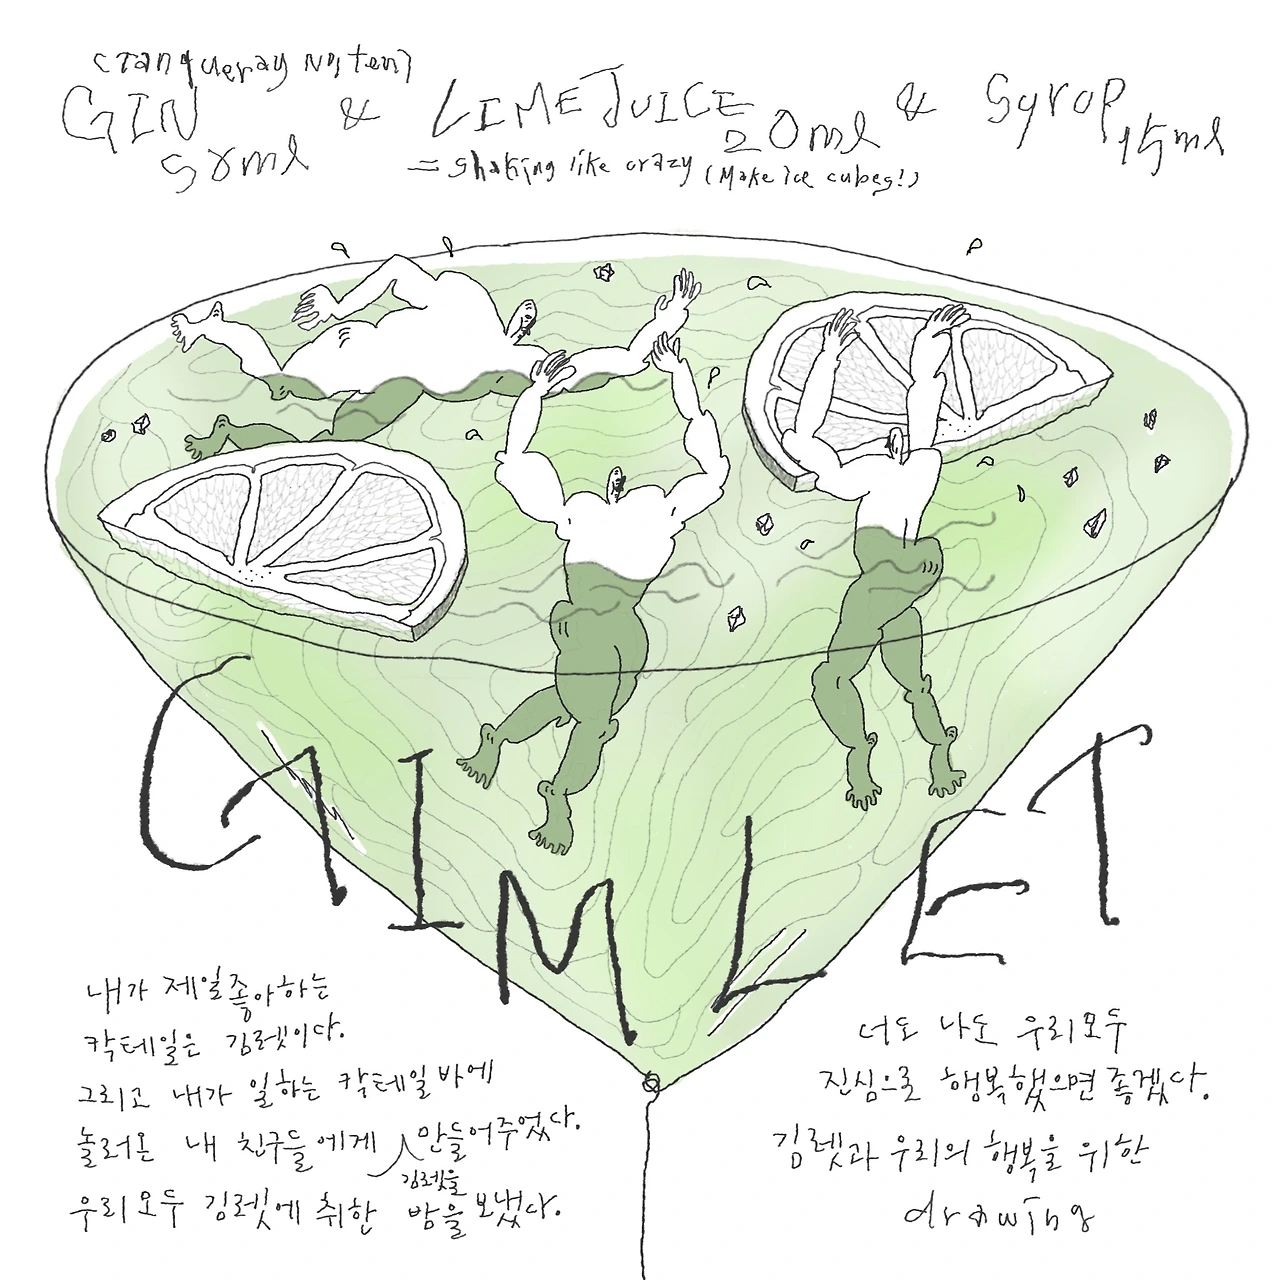 (Tanqueray No, ten)
GIN & LIME JUICE & Syrop
50ml 20ml 15ml
= shaking like crazy (Make ice cubes!)
GIMLET
내가 제일좋아하는
칵테일은 김렛이다.
그리고 내가 일하는 칵테일 바에
놀러온 내 친구들에게 만들어주었다.
김렛을
우리모두 김렛에 취한 밤을 보냈다.
너도 나도 우리모두
진심으로 행복했으면 좋겠다.
김렛과 우리의 행복을 위한
drawing